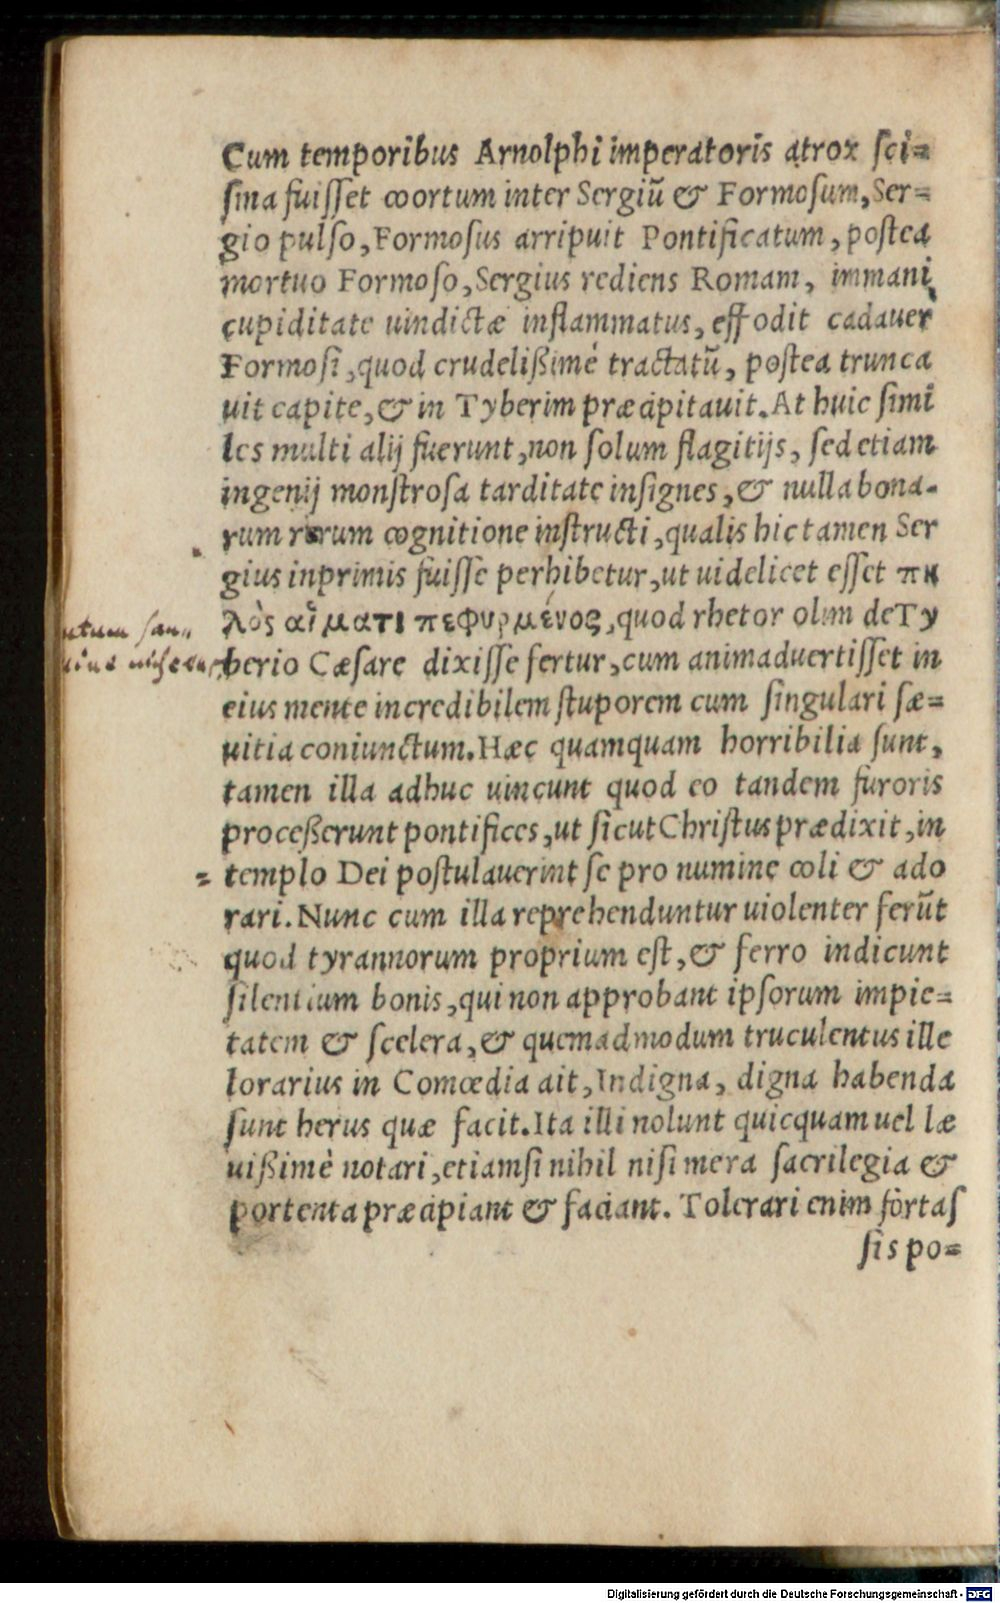 Cum temporibus Arnolphi imperatoris atrox sci=
sma fuisset coortum inter Sergiū & Formosum, Ser=
gio pulso, Formosus arripuit Pontificatum, postea
mortuo Formoso, Sergius rediens Romam, immani
cupiditate uindictæ inflammatus, effodit cadauer
Formosi, quod crudelißimè tractatū, postea trunca
uit capite, & in Tyberim præcipitauit. At huic simi
les multi alij fuerunt, non solum flagitijs, sed etiam
ingenij monstrosa tarditate insignes, & nulla bona-
rum rerum cognitione instructi, qualis hic tamen Ser
gius inprimis fuisse perhibetur, ut uidelicet esset πη
λὸς αἵματι πεφυρμένος, quod rhetor olim de Ty
berio Cæsare dixisse fertur, cum animaduertisset in
eius mente incredibilem stuporem cum singulari sæ=
uitia coniunctum. Hæc quamquam horribilia sunt,
tamen illa adhuc uincunt quod eo tandem furoris
proceßerunt pontifices, ut sicut Christus prædixit, in
templo Dei postulauerint se pro numine coli & ado
rari. Nunc cum illa reprehenduntur uiolenter ferūt
quod tyrannorum proprium est, & ferro indicunt
silentium bonis, qui non approbant ipsorum impie=
tatem & scelera, & quemadmodum truculentus ille
lorarius in Comœdia ait, Indigna, digna habenda
sunt herus quæ facit. Ita illi nolunt quicquam uel læ
uißimè notari, etiamsi nihil nisi mera sacrilegia &
portenta præcipiant & faciant. Tolerari enim fortas
sis po=
Digitalisierung gefördert durch die Deutsche Forschungsgemeinschaft - DFG